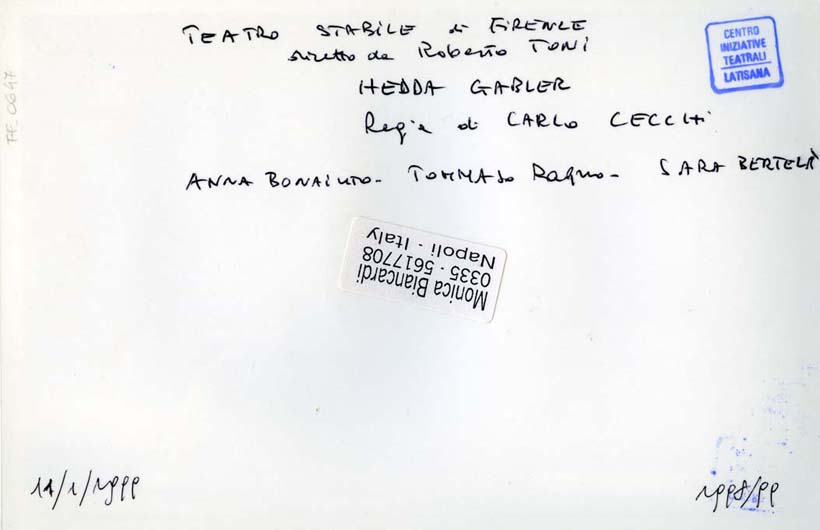 TEATRO STABILE di FIRENZE
diretto da Roberto TONI
HEDDA GABLER
Regia di CARLO CECCHI
ANNA BONAIUTO - TOMMASO Ragno - SARA BERTELÀ
CENTRO
INIZIATIVE
TEATRALI
LATISANA
TAE_0647
Monica Biancardi
0335 - 5617708
Napoli - Italy
11/1/1999
1998/99